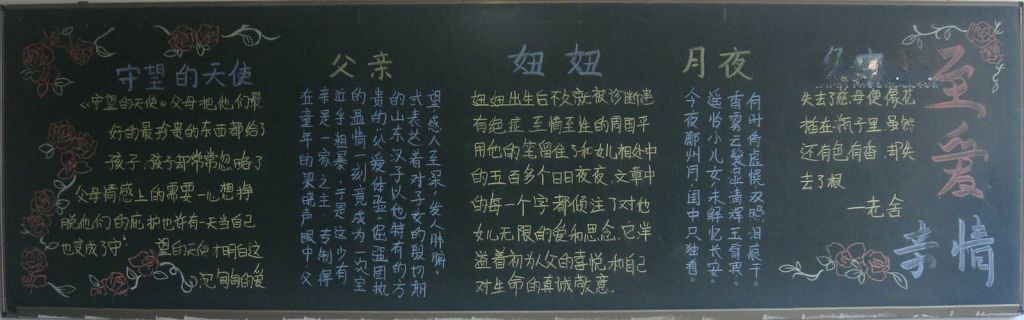 守望的天使
《守望的天使》父母把他们最
好的最珍贵的东西都给了
孩子,孩子却常常忽略了
父母情感上的需要一心想挣
脱他们的庇护也许有一天当自己
也变成了守望的天使 才明白这
沉甸甸的爱
父亲
在童年的梁晓声眼中父
亲是一家之主,专制得
近乎粗暴,于是这少有
的温情一刻竟成为一次至
贵的父爱体验。倔强固执
的山东汉子以他特有的方
式表达着对子女的殷切期
望感人至深,发人肺腑。
妞妞
妞妞出生后不久就被诊断患
有绝症,至情至性的周国平
用他的笔留住了和女儿相处中
的五百多个日日夜夜,文章中
的每一个字都倾注了对他
女儿无限的爱和思念,它洋
溢着初为人父的喜悦,和自己
对生命的真诚敬意。
月夜
今夜鄜州月,闺中只独看。
遥怜小儿女,未解忆长安。
香雾云鬟湿,清辉玉臂寒。
何时倚虚幌,双照泪痕干。
失去了慈母便像花
插在瓶子里,虽然
还有色有香,却失
去了根
—老舍
至爱
亲情